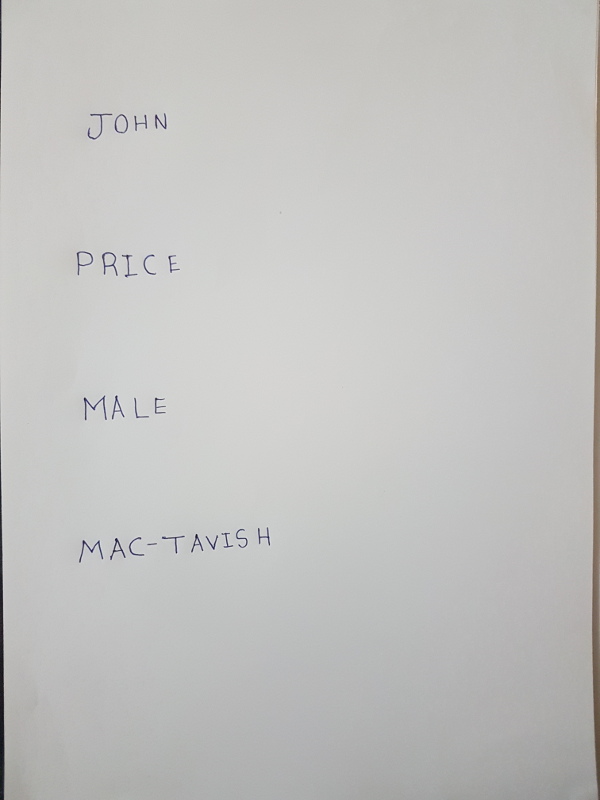 JOHN
PRICE
MALE
MAC-TAVISH